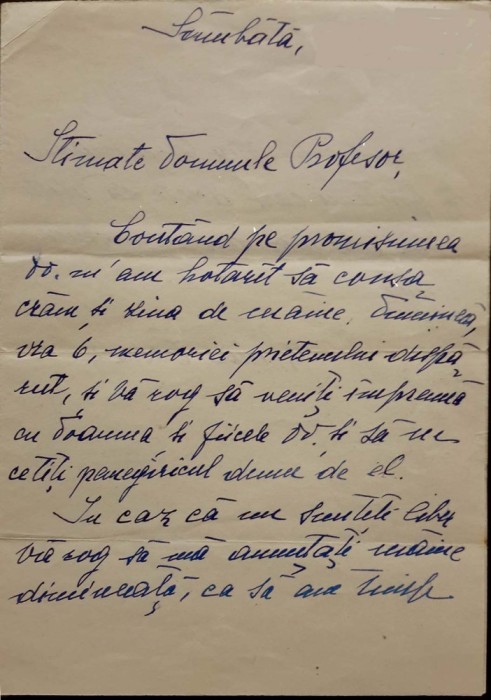 Sâmbătă,
Stimate Domnule Profesor,
Contând pe promisiunea
Dv. m'am hotarât să consa
crăm și ziua de mâine, Duminică,
ora 6, memoriei prietenului dispă
rut, și Vă rog să veniți împreună
cu Doamna și fiicele Dv. și să ne
cetiți panegiricul demn de el.
In caz că nu sunteți liber
Vă rog să mă anunțați mâine
dimineață, ca să am timp